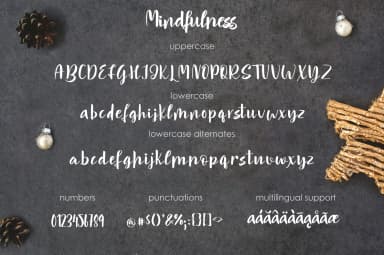 Mindfulness
uppercase
ABCDEFGHIJKLMNOPQRSTUVWXYZ
lowercase
abcdefghijklmnopqrstuvwxyz
lowercase alternates
abcdefghijklmnopqrstuvwxyz
numbers punctuations multilingual support
0123456789 @#$()*&%;:{}[]<> àáâãäåāąæ